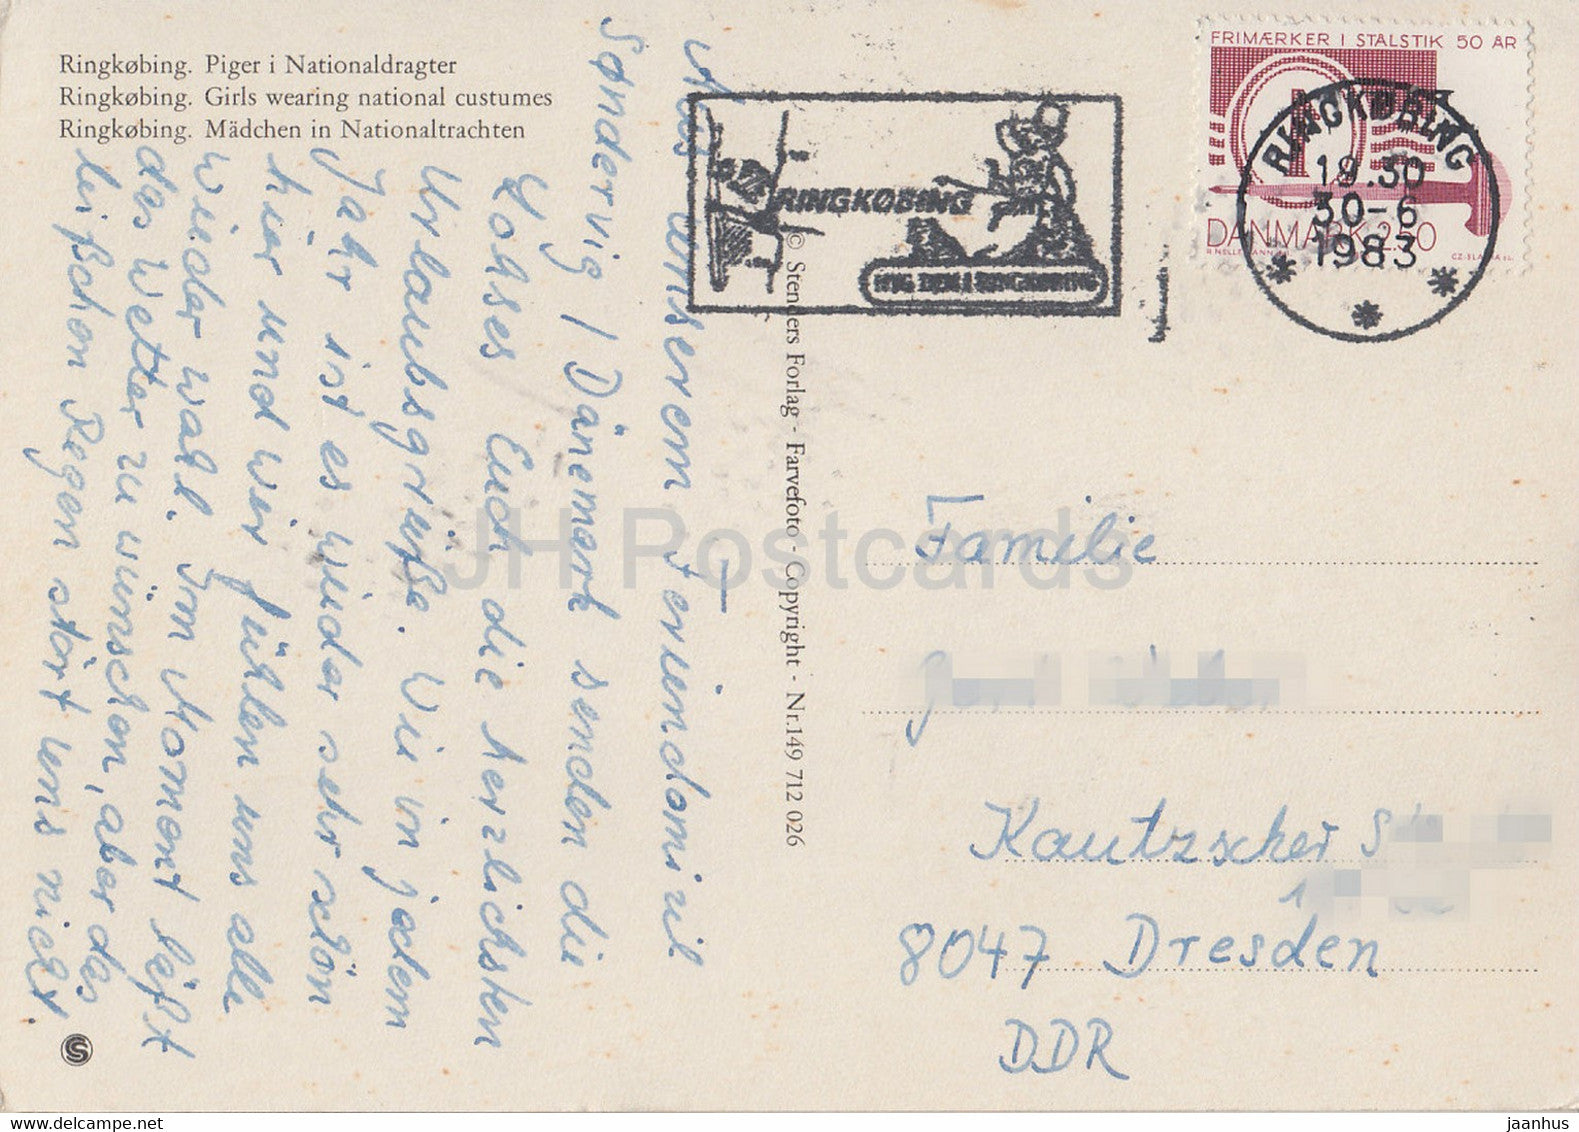 Ringkøbing. Piger i Nationaldragter
Ringkøbing. Girls wearing national custumes
Ringkøbing. Mädchen in Nationaltrachten
Aus unserem Feriendomizil
Søndervig / Dänemark senden die
Euch die herzlichsten
Urlaubsgrüße. Wie in jedem
Jahr ist es wieder sehr schön
hier und wir fühlen uns alle
wieder wohl. Im Moment läßt
das Wetter zu wünschen, aber das
bißchen Regen stört uns nicht.
© Stenders Forlag - Farvefoto - Copyright - Nr. 149 712 026
S
RINGKØBING
RINGKØBING
FRIMÆRKER I STALSTIK 50 ÅR
DANMARK 250
CZ·SLANIA sc.
RINGKØBING
19.30
30-6
1983
Familie
Kautzscher
8047 Dresden
DDR
JH Postcards
www.delcampe.net
jaanhus